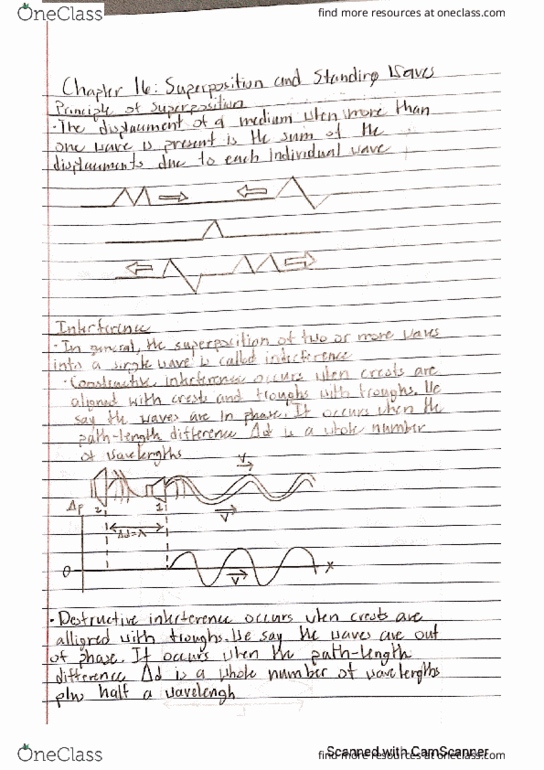 OneClass
find more resources at oneclass.com
Chapter 16: Superposition and Standing Waves
Principle of Superposition
· The displacment of a medium when more than
one wave is present is the sum of the
displacments due to each individual wave
Interference
· In general, the superposition of two or more waves
into a single wave is called interference
· Constructive interference occurs when crests are
aligned with crests and troughs with troughs. We
say the waves are in phase. It occurs when the
path-length difference Δd is a whole number
of wavelengths
V
Δp 2 1
V
Δd=λ
0 X
V
· Destructive interference occurs when crests are
alligned with troughs. We say the waves are out
of phase. It occurs when the path-length
difference Δd is a whole number of wavelengths
plus half a wavelengh
OneClass
Scanned with CamScanner
find more resources at oneclass.com